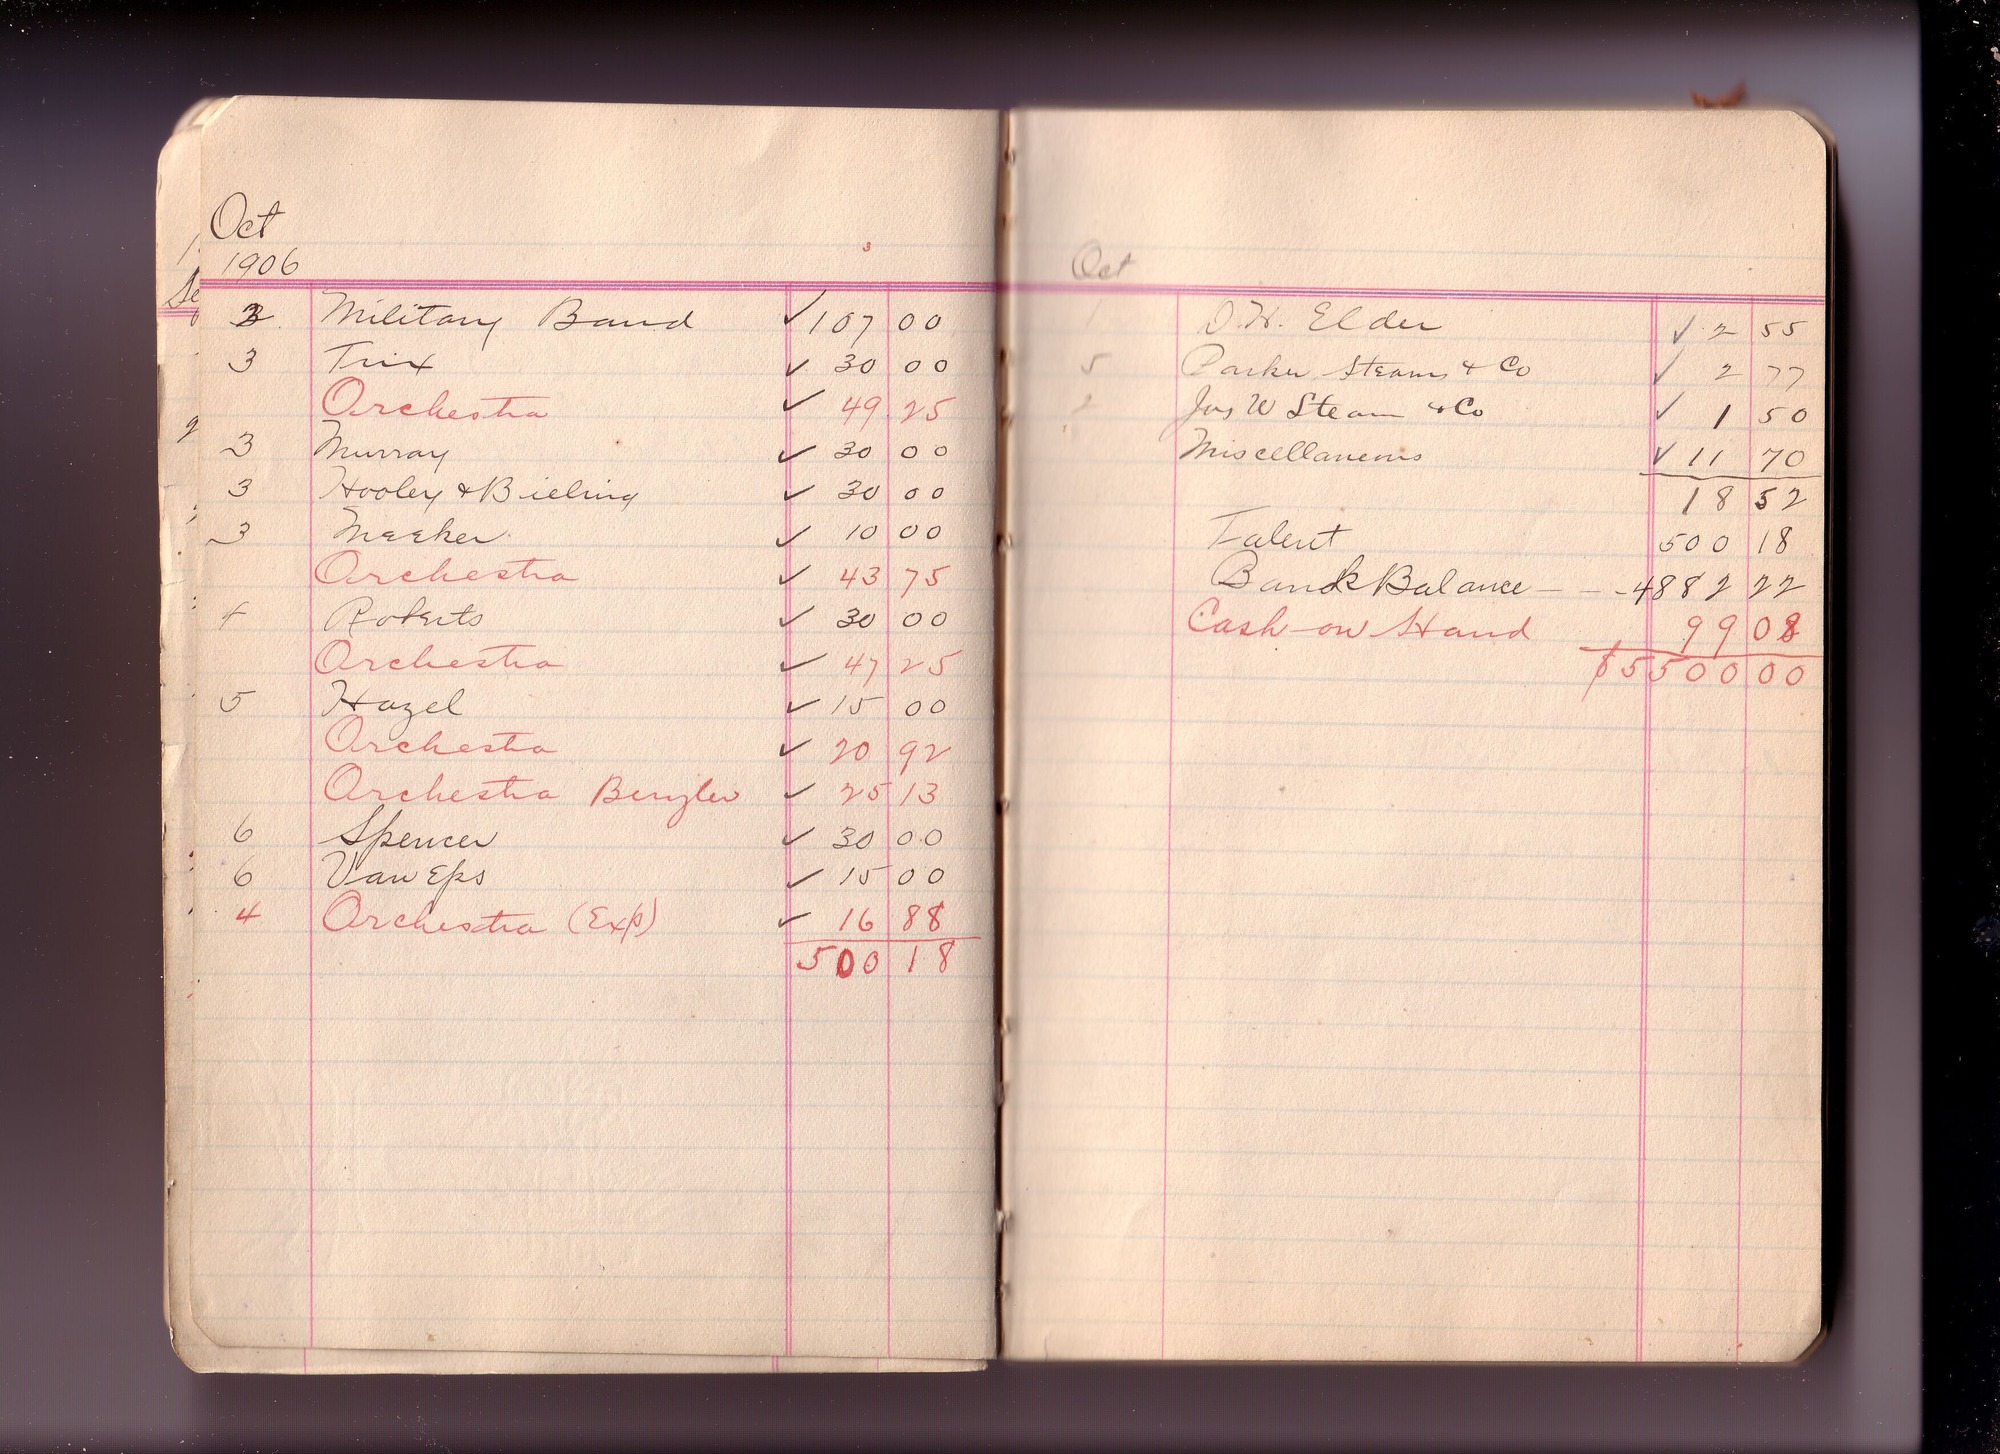 Oct
1906
3 Military Band ✓ 107 00
3 Trix ✓ 30 00
Orchestra ✓ 49 25
3 Murray ✓ 30 00
3 Hooley & Bieling ✓ 30 00
3 Meeker ✓ 10 00
Orchestra ✓ 43 75
4 Roberts ✓ 30 00
Orchestra ✓ 47 25
5 Hazel ✓ 15 00
Orchestra ✓ 20 92
Orchestra Benzler ✓ 25 13
6 Spencer ✓ 30 00
6 Van Eps ✓ 15 00
4 Orchestra (Exp) ✓ 16 88
500 18
Oct
1 D.H. Elder ✓ 2 55
5 Parker Stearns & Co ✓ 2 77
2 Jos W Stearn & Co ✓ 1 50
Miscellaneous ✓ 11 70
18 52
Talent 500 18
Bank Balance - - - 4882 22
Cash on Hand 99 08
$5500 00